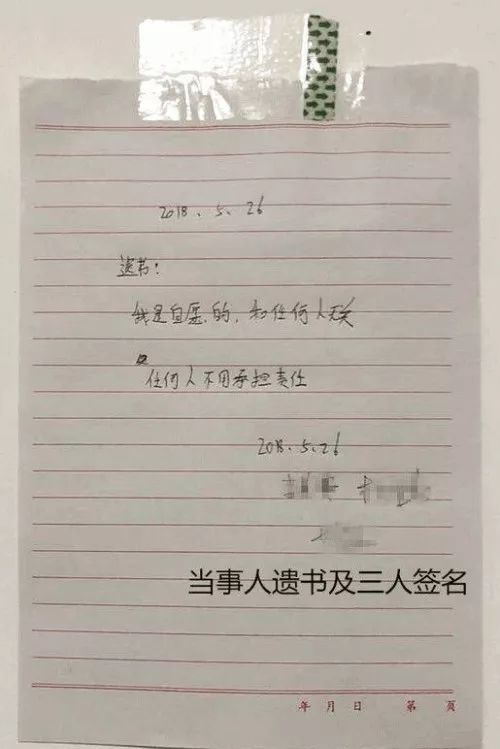 2018. 5. 26
遗书:
我是自愿的,和任何人无关
任何人不用承担责任
2018.5.26
当事人遗书及三人签名
年 月 日 第 页